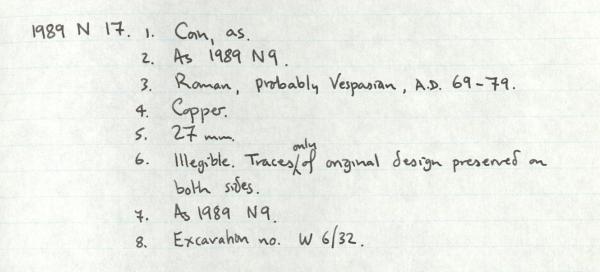 1989 N 17. 1. Coin, as.
2. As 1989 N9.
3. Roman, probably Vespasian, A.D. 69-79.
4. Copper.
5. 27 mm.
6. Illegible. Traces only of original design preserved on
both sides.
7. As 1989 N9.
8. Excavation no. W 6/32.